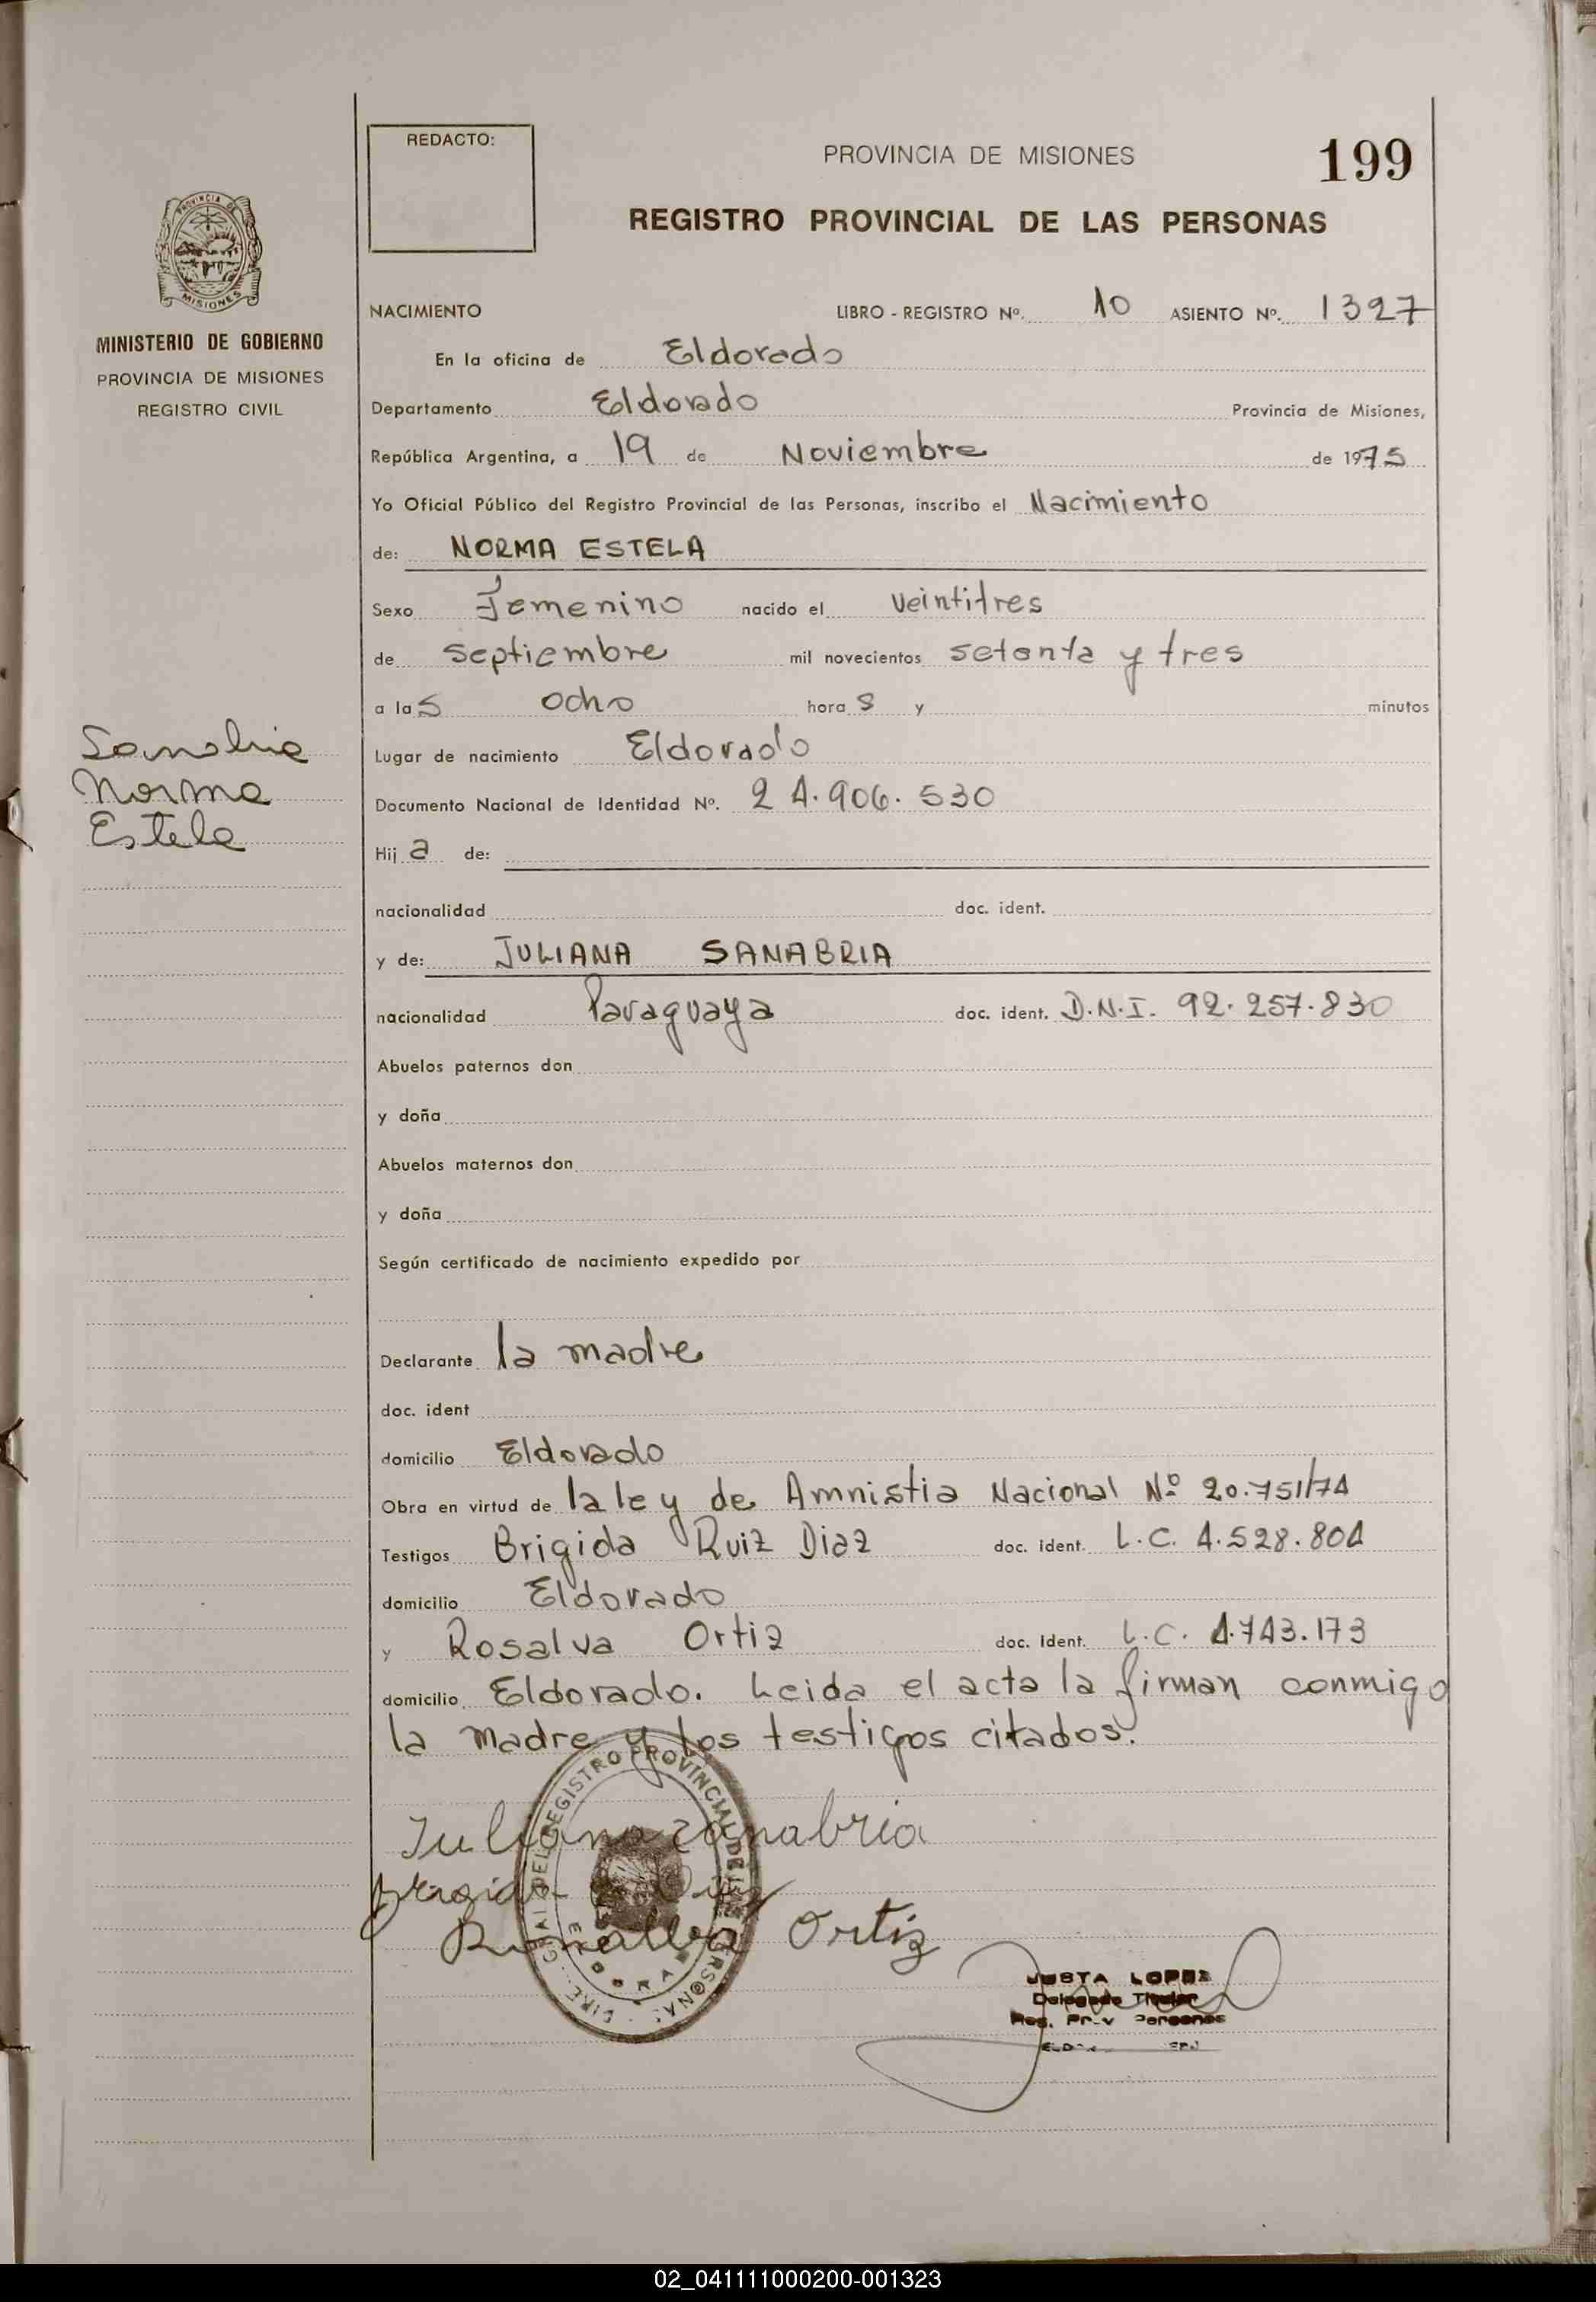 REDACTO:
PROVINCIA DE MISIONES
199
REGISTRO PROVINCIAL DE LAS PERSONAS
PROVINCIA DE
MISIONES
MINISTERIO DE GOBIERNO
PROVINCIA DE MISIONES
REGISTRO CIVIL
NACIMIENTO LIBRO - REGISTRO Nº. 10 ASIENTO Nº. 1327
En la oficina de Eldorado
Departamento Eldorado Provincia de Misiones,
República Argentina, a 19 de Noviembre de 1975
Yo Oficial Público del Registro Provincial de las Personas, inscribo el Nacimiento
de: NORMA ESTELA
Sexo Femenino nacido el veintitres
de septiembre mil novecientos setenta y tres
a las ocho horas y minutos
Sanabria
Norma
Estela
Lugar de nacimiento Eldorado
Documento Nacional de Identidad Nº. 24.906.530
Hija de:
nacionalidad doc. ident.
y de: JULIANA SANABRIA
nacionalidad Paraguaya doc. ident. D.N.I. 92.257.830
Abuelos paternos don
y doña
Abuelos maternos don
y doña
Según certificado de nacimiento expedido por
Declarante la madre
doc. ident
domicilio Eldorado
Obra en virtud de la ley de Amnistia Nacional Nº 20.751/74
Testigos Brigida Ruiz Diaz doc. ident. L.C. 4.528.804
domicilio Eldorado
y Rosalva Ortiz doc. Ident. L.C. 4.743.173
domicilio Eldorado. Leida el acta la firman conmigo
la madre y los testigos citados.
REGISTRO PROVINCIAL DE LAS PERSONAS
Juliana zanabria
Ortiz
JUSTA LOPEZ
Delegado Titular
Reg. Prov Personas
02_041111000200-001323